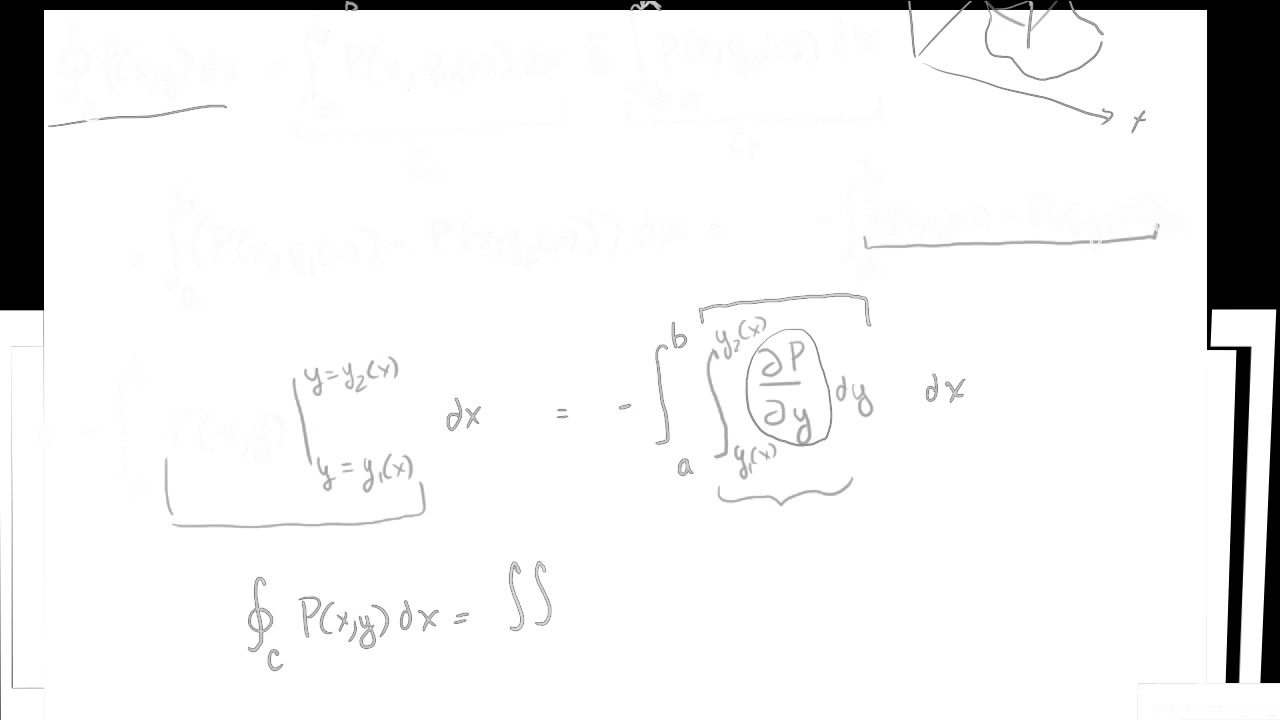 x
∮_C P(x,y) dx = ∫_a^b P(x, y_1(x)) dx + ∫ P(x, y_2(x)) dx
C_1
= ∫_a^b (P(x, y_1(x)) - P(x, y_2(x))) dx = - ∫_a^b
= - ∫_a^b P(x,y) |_{y = y_1(x)}^{y = y_2(x)} dx = - ∫_a^b ∫_{y_1(x)}^{y_2(x)} ∂P/∂y dy dx
∮_C P(x,y) dx = ∫∫